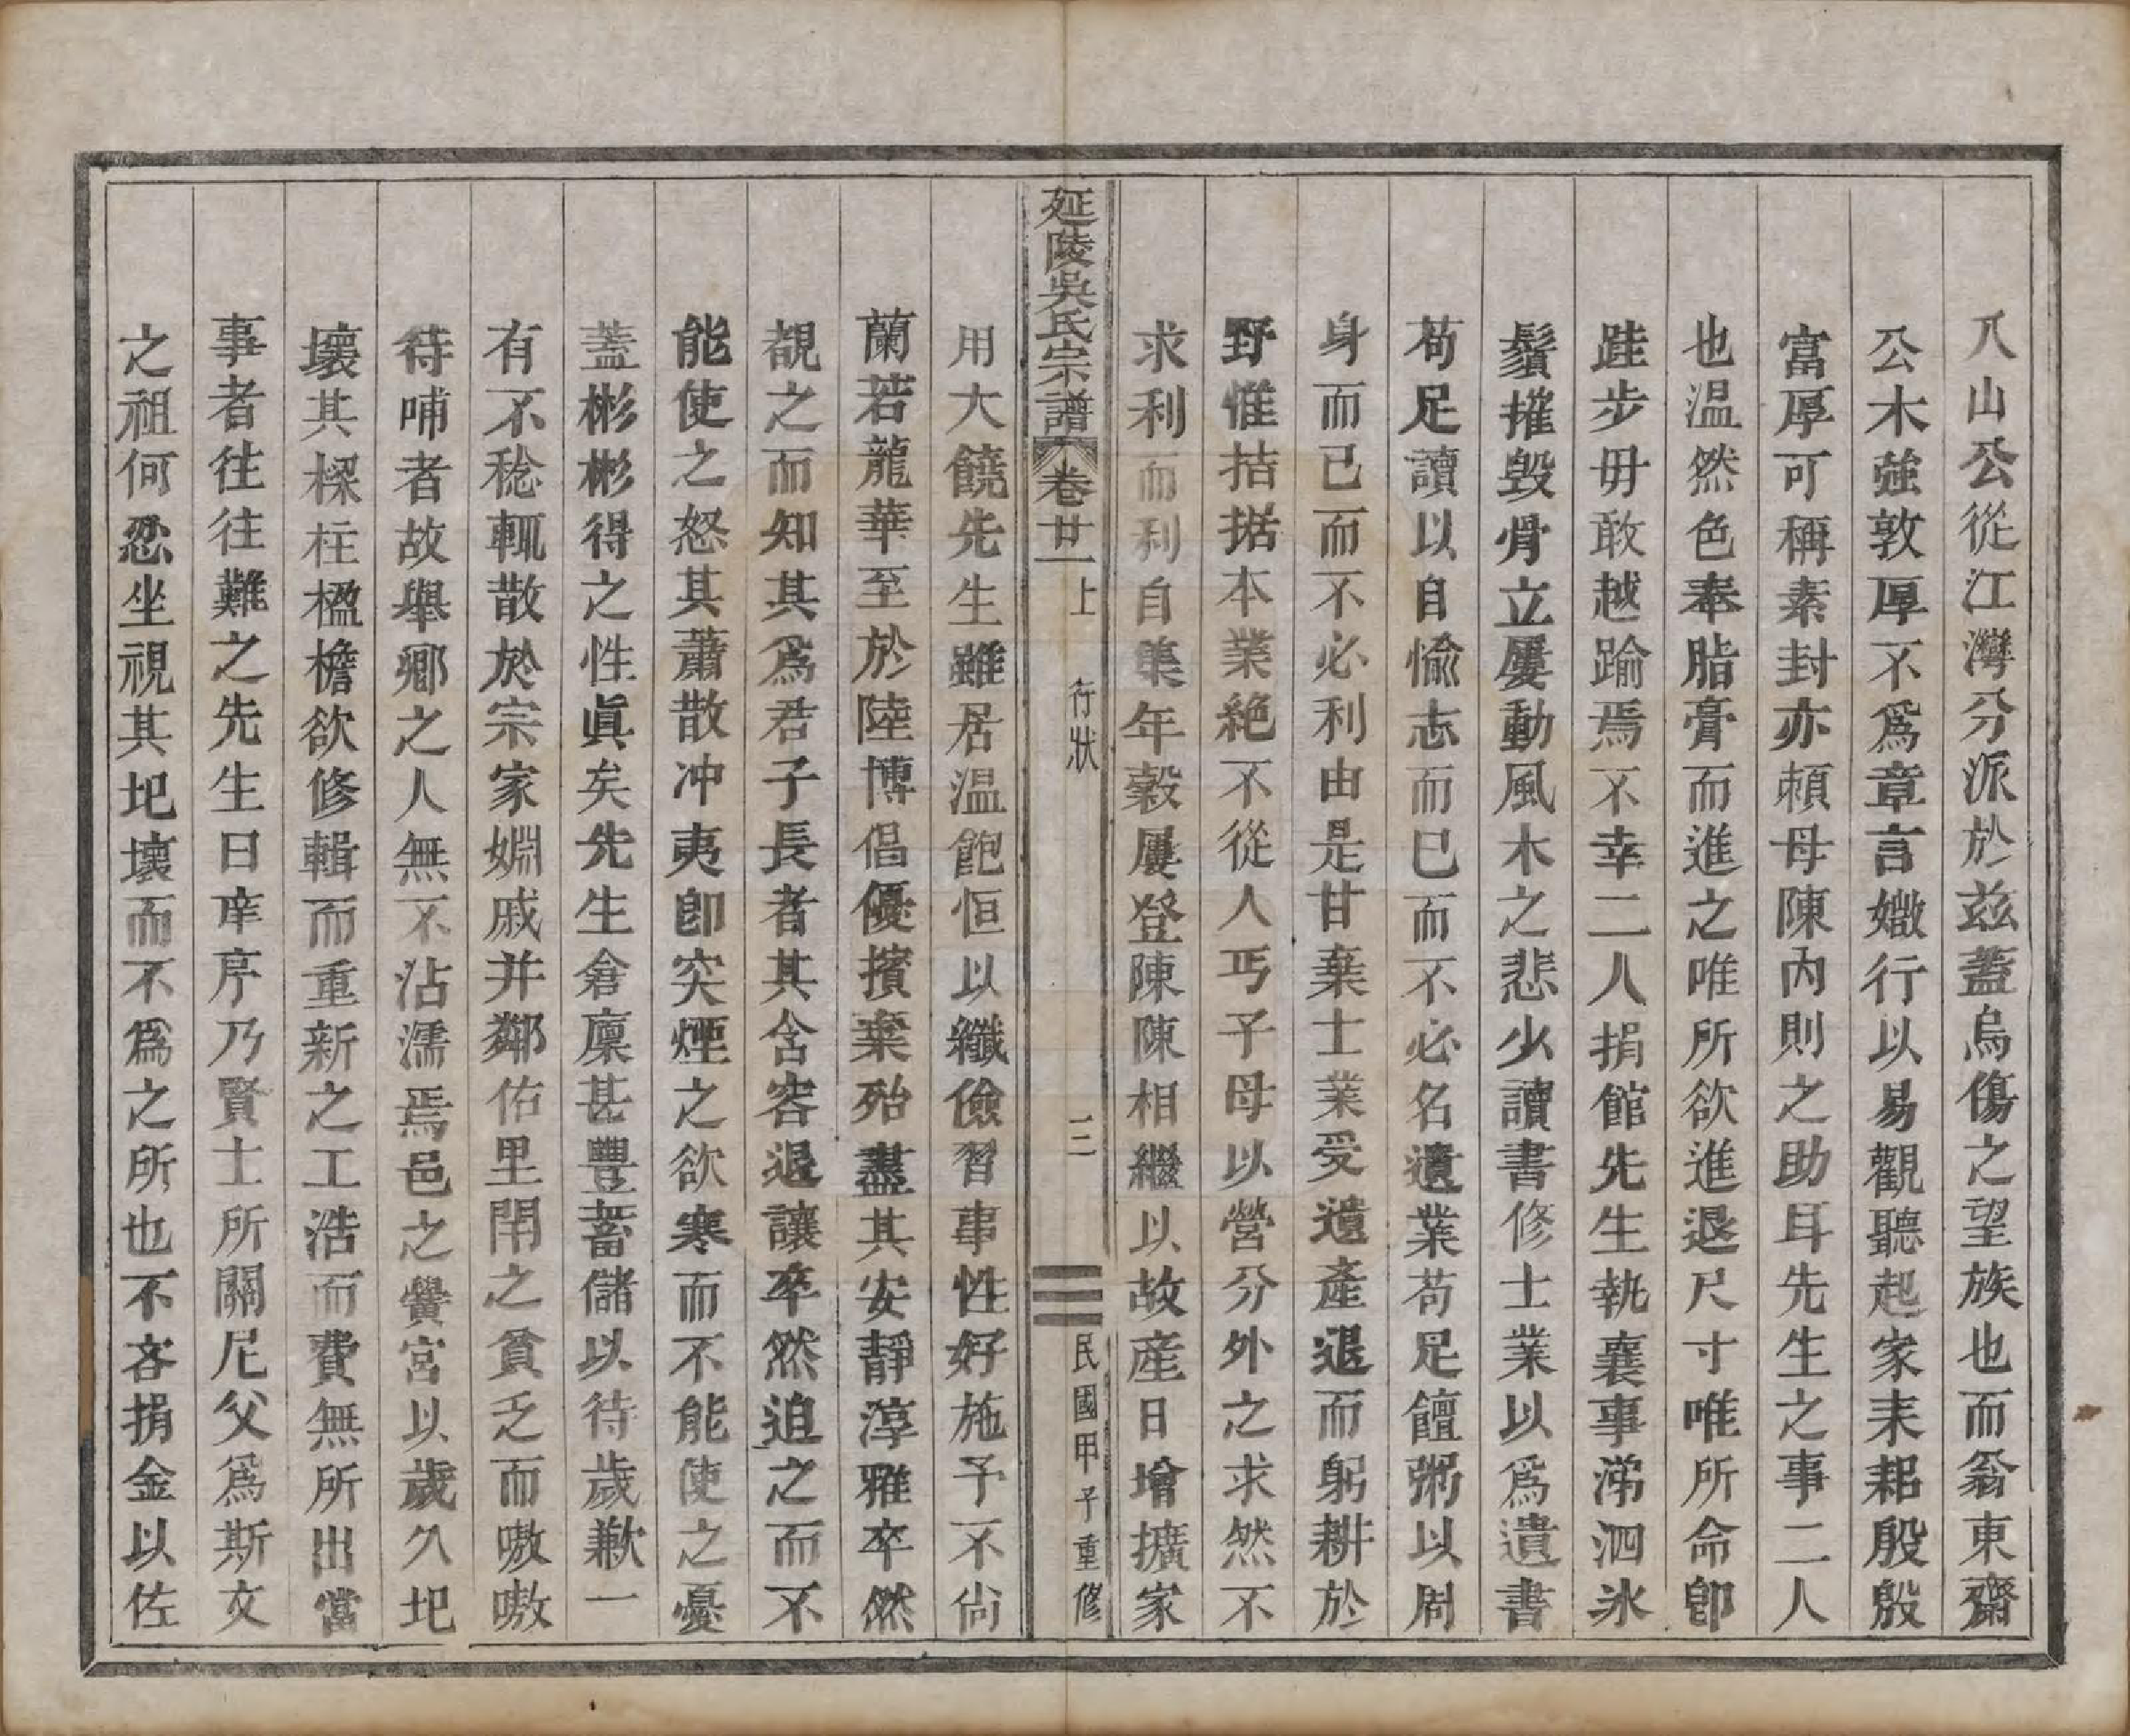 八山公從江灣分派於茲蓋烏傷之望族也而翁東齋
公木強敦厚不爲章言㜩行以易觀聽起家耒耜殷殷
富厚可稱素封亦頼母陳內則之助耳先生之事二人
也温然色奉脂膏而進之唯所欲進退尺寸唯所命卽
跬步毋敢越踰焉不幸二人捐館先生執襄事涕泗氷
鬚摧毀骨立屢動風木之悲少讀書修士業以爲遺書
苟足讀以自愉志而已而不必名遺業苟足饘粥以周
身而已而不必利由是甘棄士業受遺產退而躬耕於
野惟拮据本業絶不從人丐子母以營分外之求然不
求利而利自集年穀屢登陳陳相繼以故產日增擴家
延陵吳氏宗譜 卷廿一上 行狀 三 民國甲子重修
用大饒先生雖居温飽恒以纖儉習事性好施予不尙
蘭若龍華至於陸博倡優擯棄殆盡其安靜淳雅卒然
覩之而知其爲君子長者其含容退讓卒然迫之而不
能使之怒其蕭散冲夷卽突煙之欲寒而不能使之憂
蓋彬彬得之性眞矣先生倉廪甚豐蓄儲以待歲歉一
有不稔輒散於宗家婣戚并鄰佑里閈之貧乏而嗷嗷
待哺者故舉鄉之人無不沾濡焉邑之黌宮以歲久圯
壞其樑柱楹檐欲修輯而重新之工浩而費無所出當
事者往往難之先生曰庠序乃賢士所關尼父爲斯文
之祖何忍坐視其圯壞而不爲之所也不吝捐金以佐